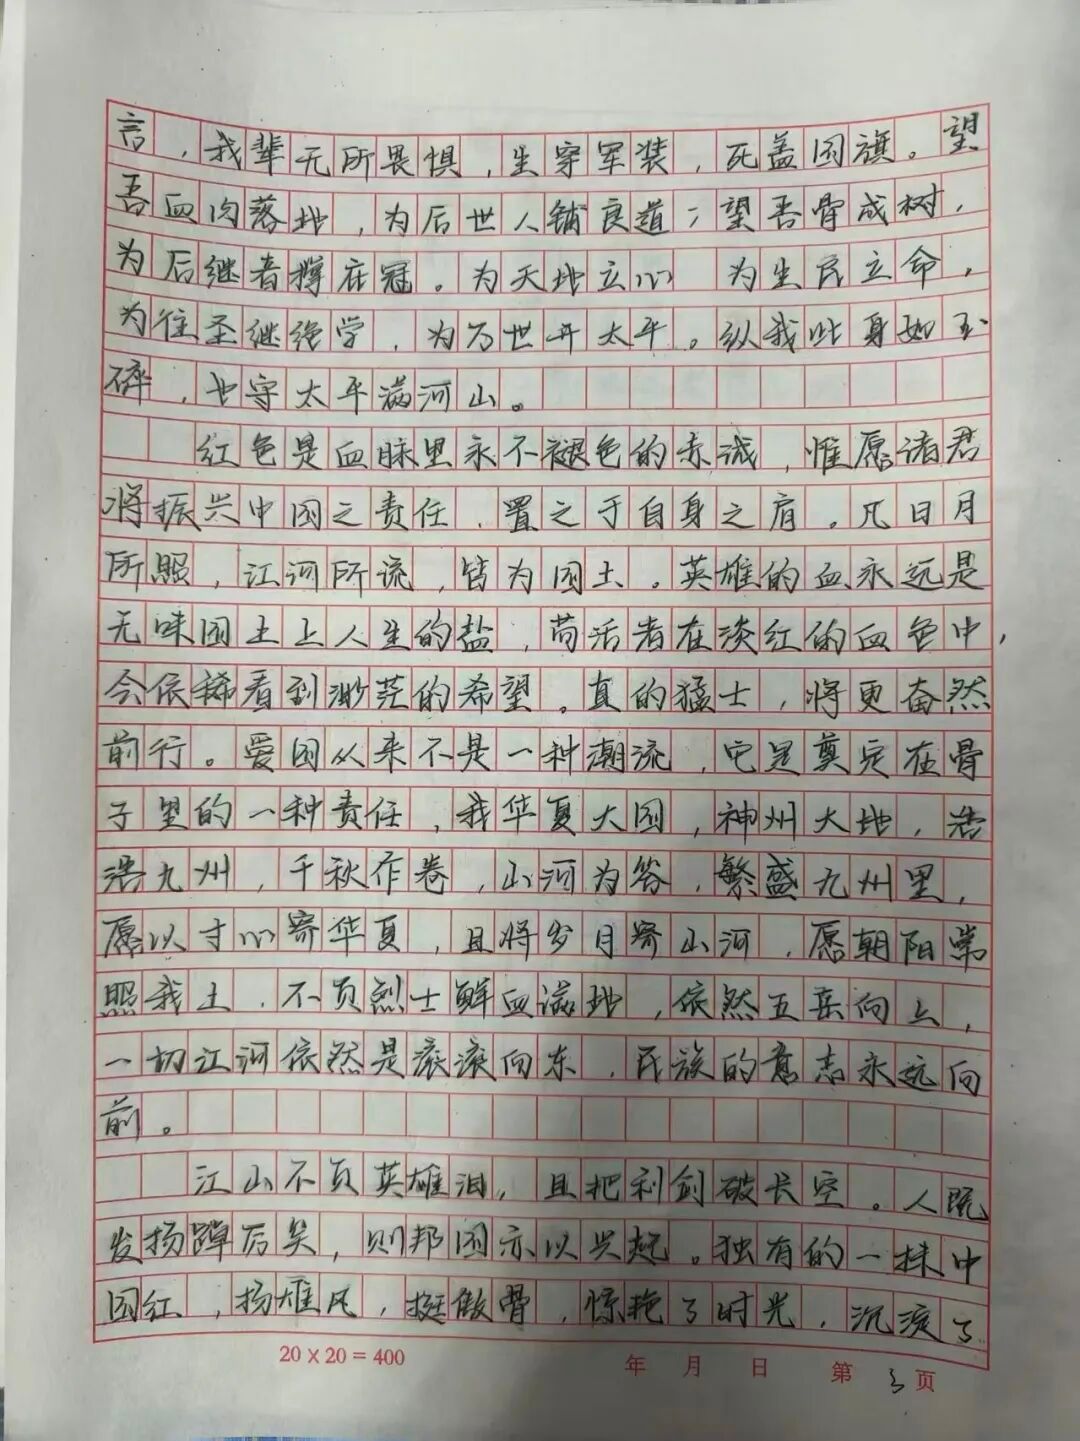 言，我辈无所畏惧，生穿军装，死盖国旗。望
吾血肉落地，为后世人铺良道；望吾骨成树，
为后继者撑在冠。为天地立心 为生民立命，
为往圣继绝学，为万世开太平。纵我此身如玉
碎，也守太平满河山。
红色是血脉里永不褪色的赤诚，惟愿诸君
将振兴中国之责任、置之于自身之肩。凡日月
所照，江河所流，皆为国土。英雄的血永远是
无味国土上人生的盐，苟活者在淡红的血色中，
会依稀看到渺茫的希望。真的猛士，将更奋然
前行。爱国从来不是一种潮流，它是奠定在骨
子里的一种责任，我华夏大国，神州大地，浩
浩九州，千秋作卷，山河为答，繁盛九州里，
愿以寸心寄华夏，且将岁月寄山河，愿朝阳常
照我土，不负烈士鲜血满地，依然五岳向上，
一切江河依然是滚滚向东，民族的意志永远向
前。
江山不负英雄泪，且把利剑破长空。人既
发扬踔厉矣，则邦国亦以兴起。独有的一抹中
国红，扬雄风，挺傲骨，惊艳了时光，沉淀了
20×20=400 年 月 日 第 3 页